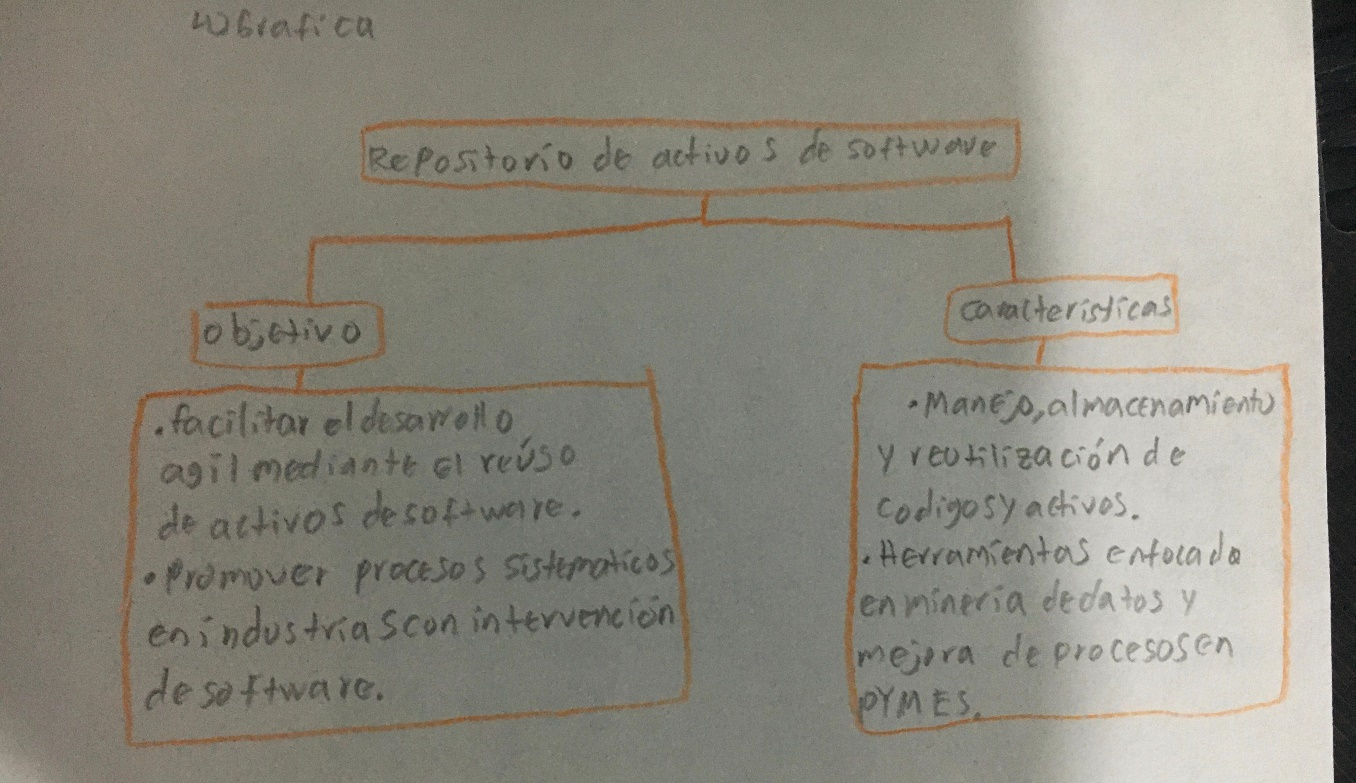 Grafica
Repositorio de activos de software
objetivo
caracteristicas
.facilitar el desarrollo
agil mediante el reúso
de activos de software.
•Promover procesos sistematicos
en industrias con intervención
de software.
•Manejo, almacenamiento
y reutilización de
codigos y activos.
•Herramientas enfocada
en minería de datos y
mejora de procesos en
PYMES.